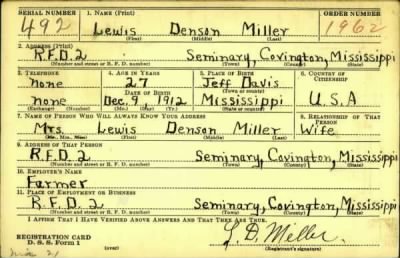 SERIAL NUMBER 1. NAME (Print) ORDER NUMBER
492 Lewis Denson Miller 1962
(First) (Middle) (Last)
2. ADDRESS (Print)
R.F.D. 2 Seminary, Covington, Mississippi
(Number and street or R. F. D. number) (Town) (County) (State)
3. TELEPHONE 4. AGE IN YEARS 5. PLACE OF BIRTH 6. COUNTRY OF CITIZENSHIP
none 27 Jeff Davis
DATE OF BIRTH (Town or county)
none Dec. 9, 1912 Mississippi U.S.A
(Exchange) (Number) (Mo.) (Day) (Yr.) (State or country)
7. NAME OF PERSON WHO WILL ALWAYS KNOW YOUR ADDRESS 8. RELATIONSHIP OF THAT PERSON
Mrs. Lewis Denson Miller Wife
(Mr., Mrs., Miss) (First) (Middle) (Last)
9. ADDRESS OF THAT PERSON
R.F.D. 2 Seminary, Covington, Mississippi
(Number and street or R. F. D. number) (Town) (County) (State)
10. EMPLOYER'S NAME
Farmer
11. PLACE OF EMPLOYMENT OR BUSINESS
R.F.D. 2 Seminary, Covington, Mississippi
(Number and street or R. F. D. number) (Town) (County) (State)
I AFFIRM THAT I HAVE VERIFIED ABOVE ANSWERS AND THAT THEY ARE TRUE.
REGISTRATION CARD L. D. Miller.
D. S. S. Form 1 (over) (Registrant's signature)